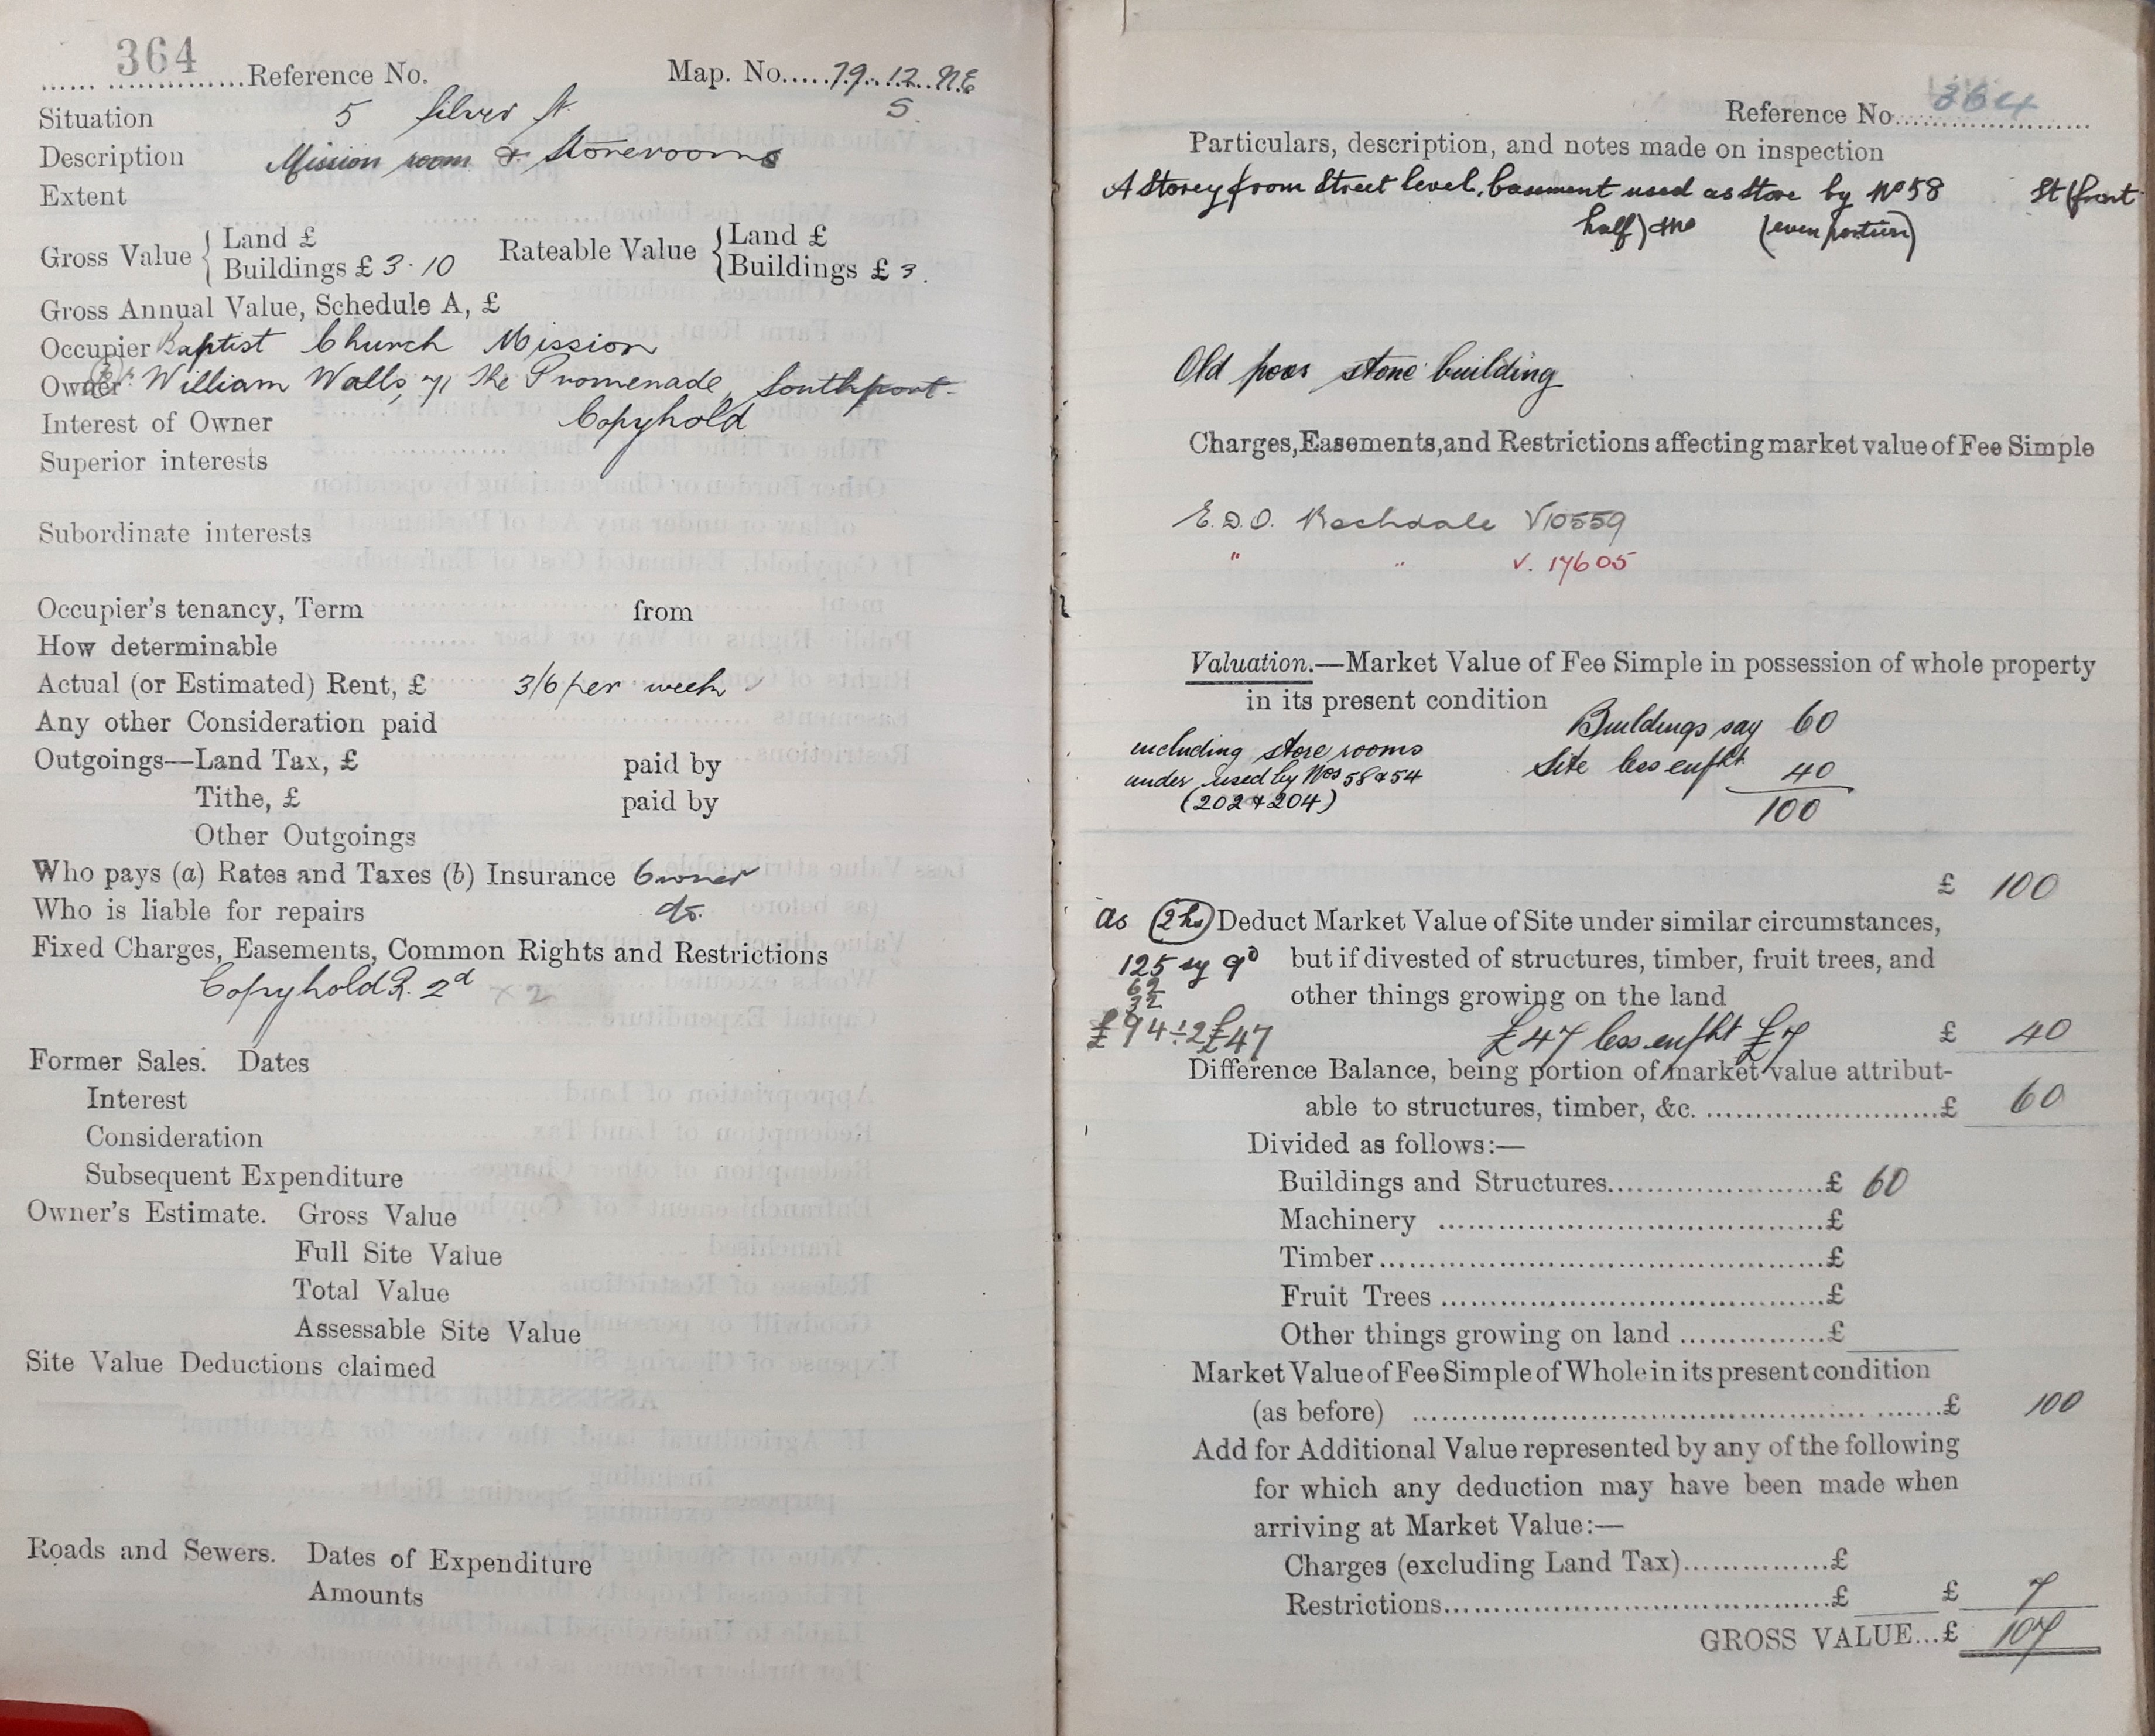 364 Reference No. Map. No. 79. 12. N.E
S.
Situation 5 Silver St.
Description Mission room & Storerooms
Extent
Gross Value { Land £ Rateable Value { Land £
Buildings £ 3.10 Buildings £ 3.
Gross Annual Value, Schedule A, £
Occupier Baptist Church Mission
Owner William Walls, 71 The Promenade, Southport
Interest of Owner Copyhold
Superior interests
Subordinate interests
Occupier's tenancy, Term from
How determinable
Actual (or Estimated) Rent, £ 3/6 per week
Any other Consideration paid
Outgoings—Land Tax, £ paid by
Tithe, £ paid by
Other Outgoings
Who pays (a) Rates and Taxes (b) Insurance Owner
Who is liable for repairs do.
Fixed Charges, Easements, Common Rights and Restrictions
Copyhold R. 2d x 2
Former Sales. Dates
Interest
Consideration
Subsequent Expenditure
Owner's Estimate. Gross Value
Full Site Value
Total Value
Assessable Site Value
Site Value Deductions claimed
Roads and Sewers. Dates of Expenditure
Amounts
Reference No. 364
Particulars, description, and notes made on inspection
A Storey from Street level, basement used as Store by No 58 St (front
half) (even portion)
Old poor stone building
Charges, Easements, and Restrictions affecting market value of Fee Simple
E.D.O. Rochdale V10559
" " v. 17605
Valuation.—Market Value of Fee Simple in possession of whole property
in its present condition
Buildings say 60
including store rooms Site less enfht 40
under used by Nos 58 & 54
(202 & 204) 100
£ 100
as (2 hs) Deduct Market Value of Site under similar circumstances,
125 sy 9° but if divested of structures, timber, fruit trees, and
62
32 other things growing on the land
£94÷2 £47 £47 less enfht £7 £ 40
Difference Balance, being portion of market value attribut-
able to structures, timber, &c. £ 60
Divided as follows:—
Buildings and Structures £ 60
Machinery £
Timber £
Fruit Trees £
Other things growing on land £
Market Value of Fee Simple of Whole in its present condition
(as before) £ 100
Add for Additional Value represented by any of the following
for which any deduction may have been made when
arriving at Market Value:—
Charges (excluding Land Tax) £
Restrictions £ £ 7
GROSS VALUE... £ 107